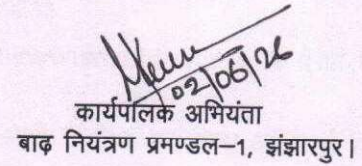 02/06/26
कार्यपालक अभियंता
बाढ़ नियंत्रण प्रमण्डल–1, झंझारपुर।